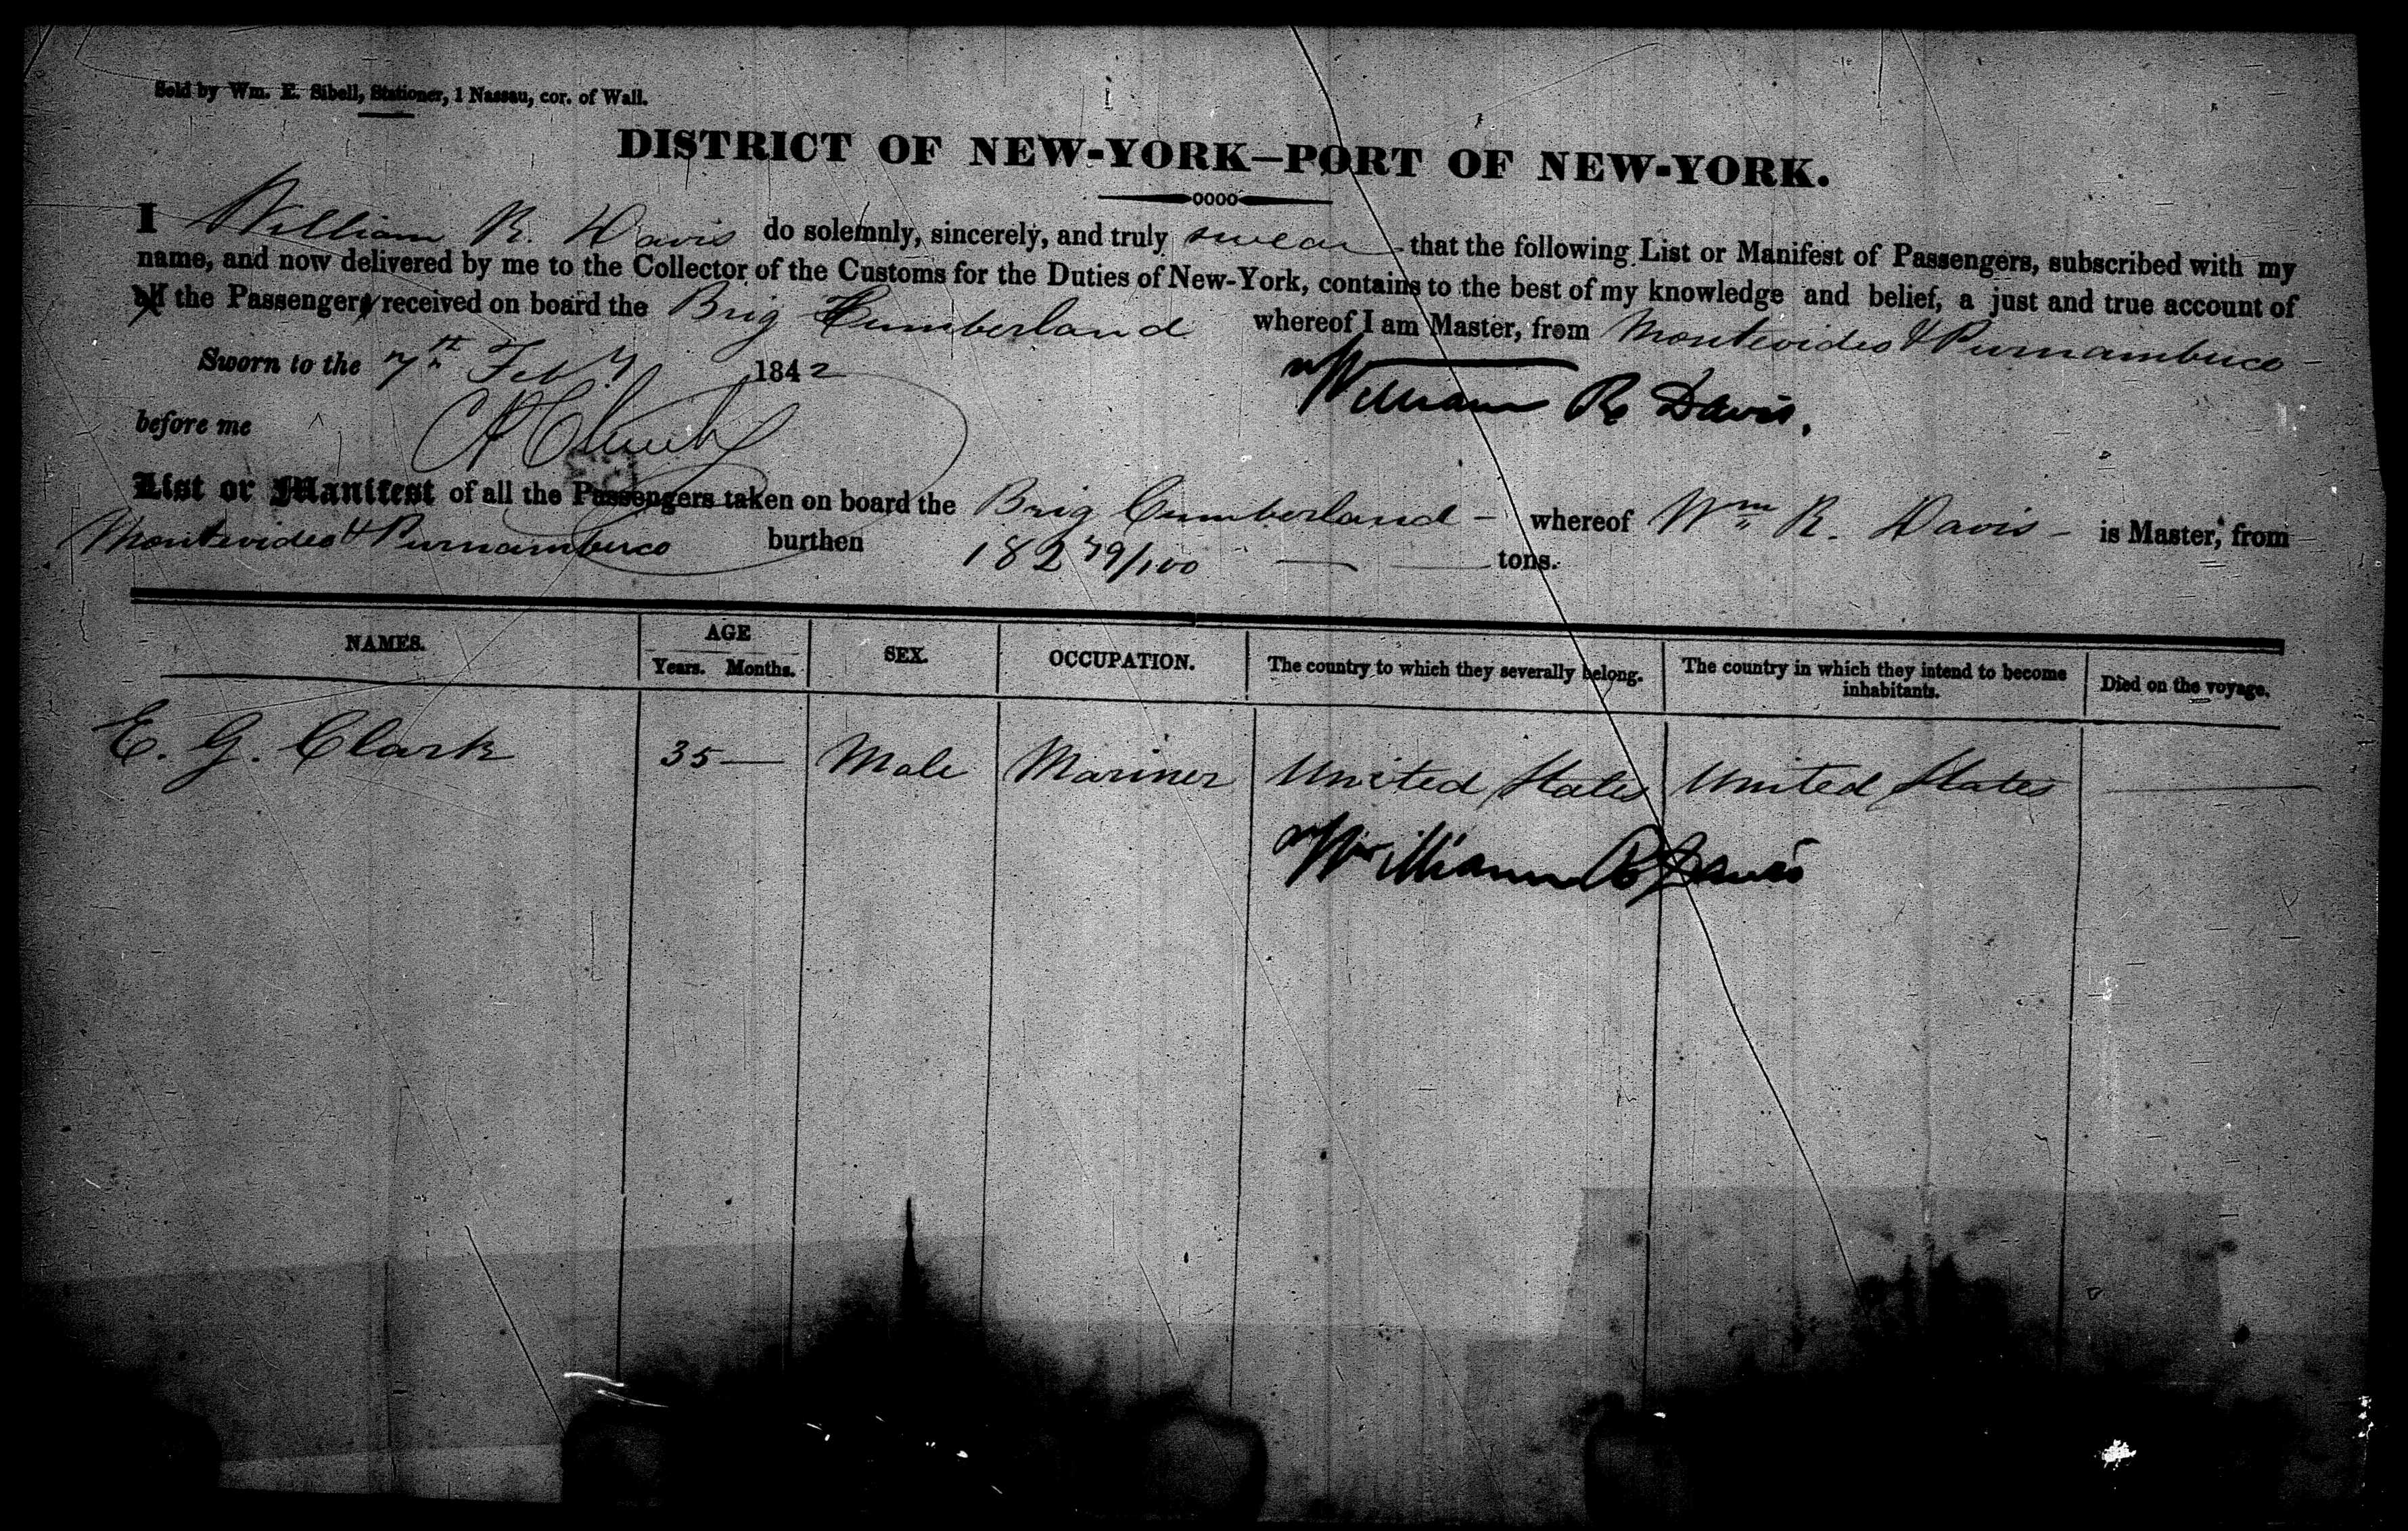 Sold by Wm. E. Sibell, Stationer, 1 Nassau, cor. of Wall.
DISTRICT OF NEW-YORK—PORT OF NEW-YORK.
I William R. Davis do solemnly, sincerely, and truly swear that the following List or Manifest of Passengers, subscribed with my
name, and now delivered by me to the Collector of the Customs for the Duties of New-York, contains to the best of my knowledge and belief, a just and true account of
all the Passengers received on board the Brig Cumberland whereof I am Master, from Montevideo & Purnambuco
Sworn to the 7th Feby 1842
William R Davis.
before me
List or Manifest of all the Passengers taken on board the Brig Cumberland - whereof Wm R. Davis - is Master, from
Montevideo & Purnambuco burthen 182 79/100 tons.
NAMES. AGE Years. Months. SEX. OCCUPATION. The country to which they severally belong. The country in which they intend to become inhabitants. Died on the voyage.
E. G. Clark 35 — Male Mariner United States United States —
William R Davis